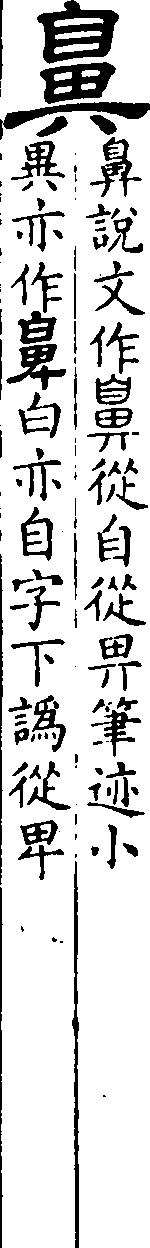 鼻
鼻說文作鼻從自從畀筆迹小
異亦作白亦自字下譌從卑